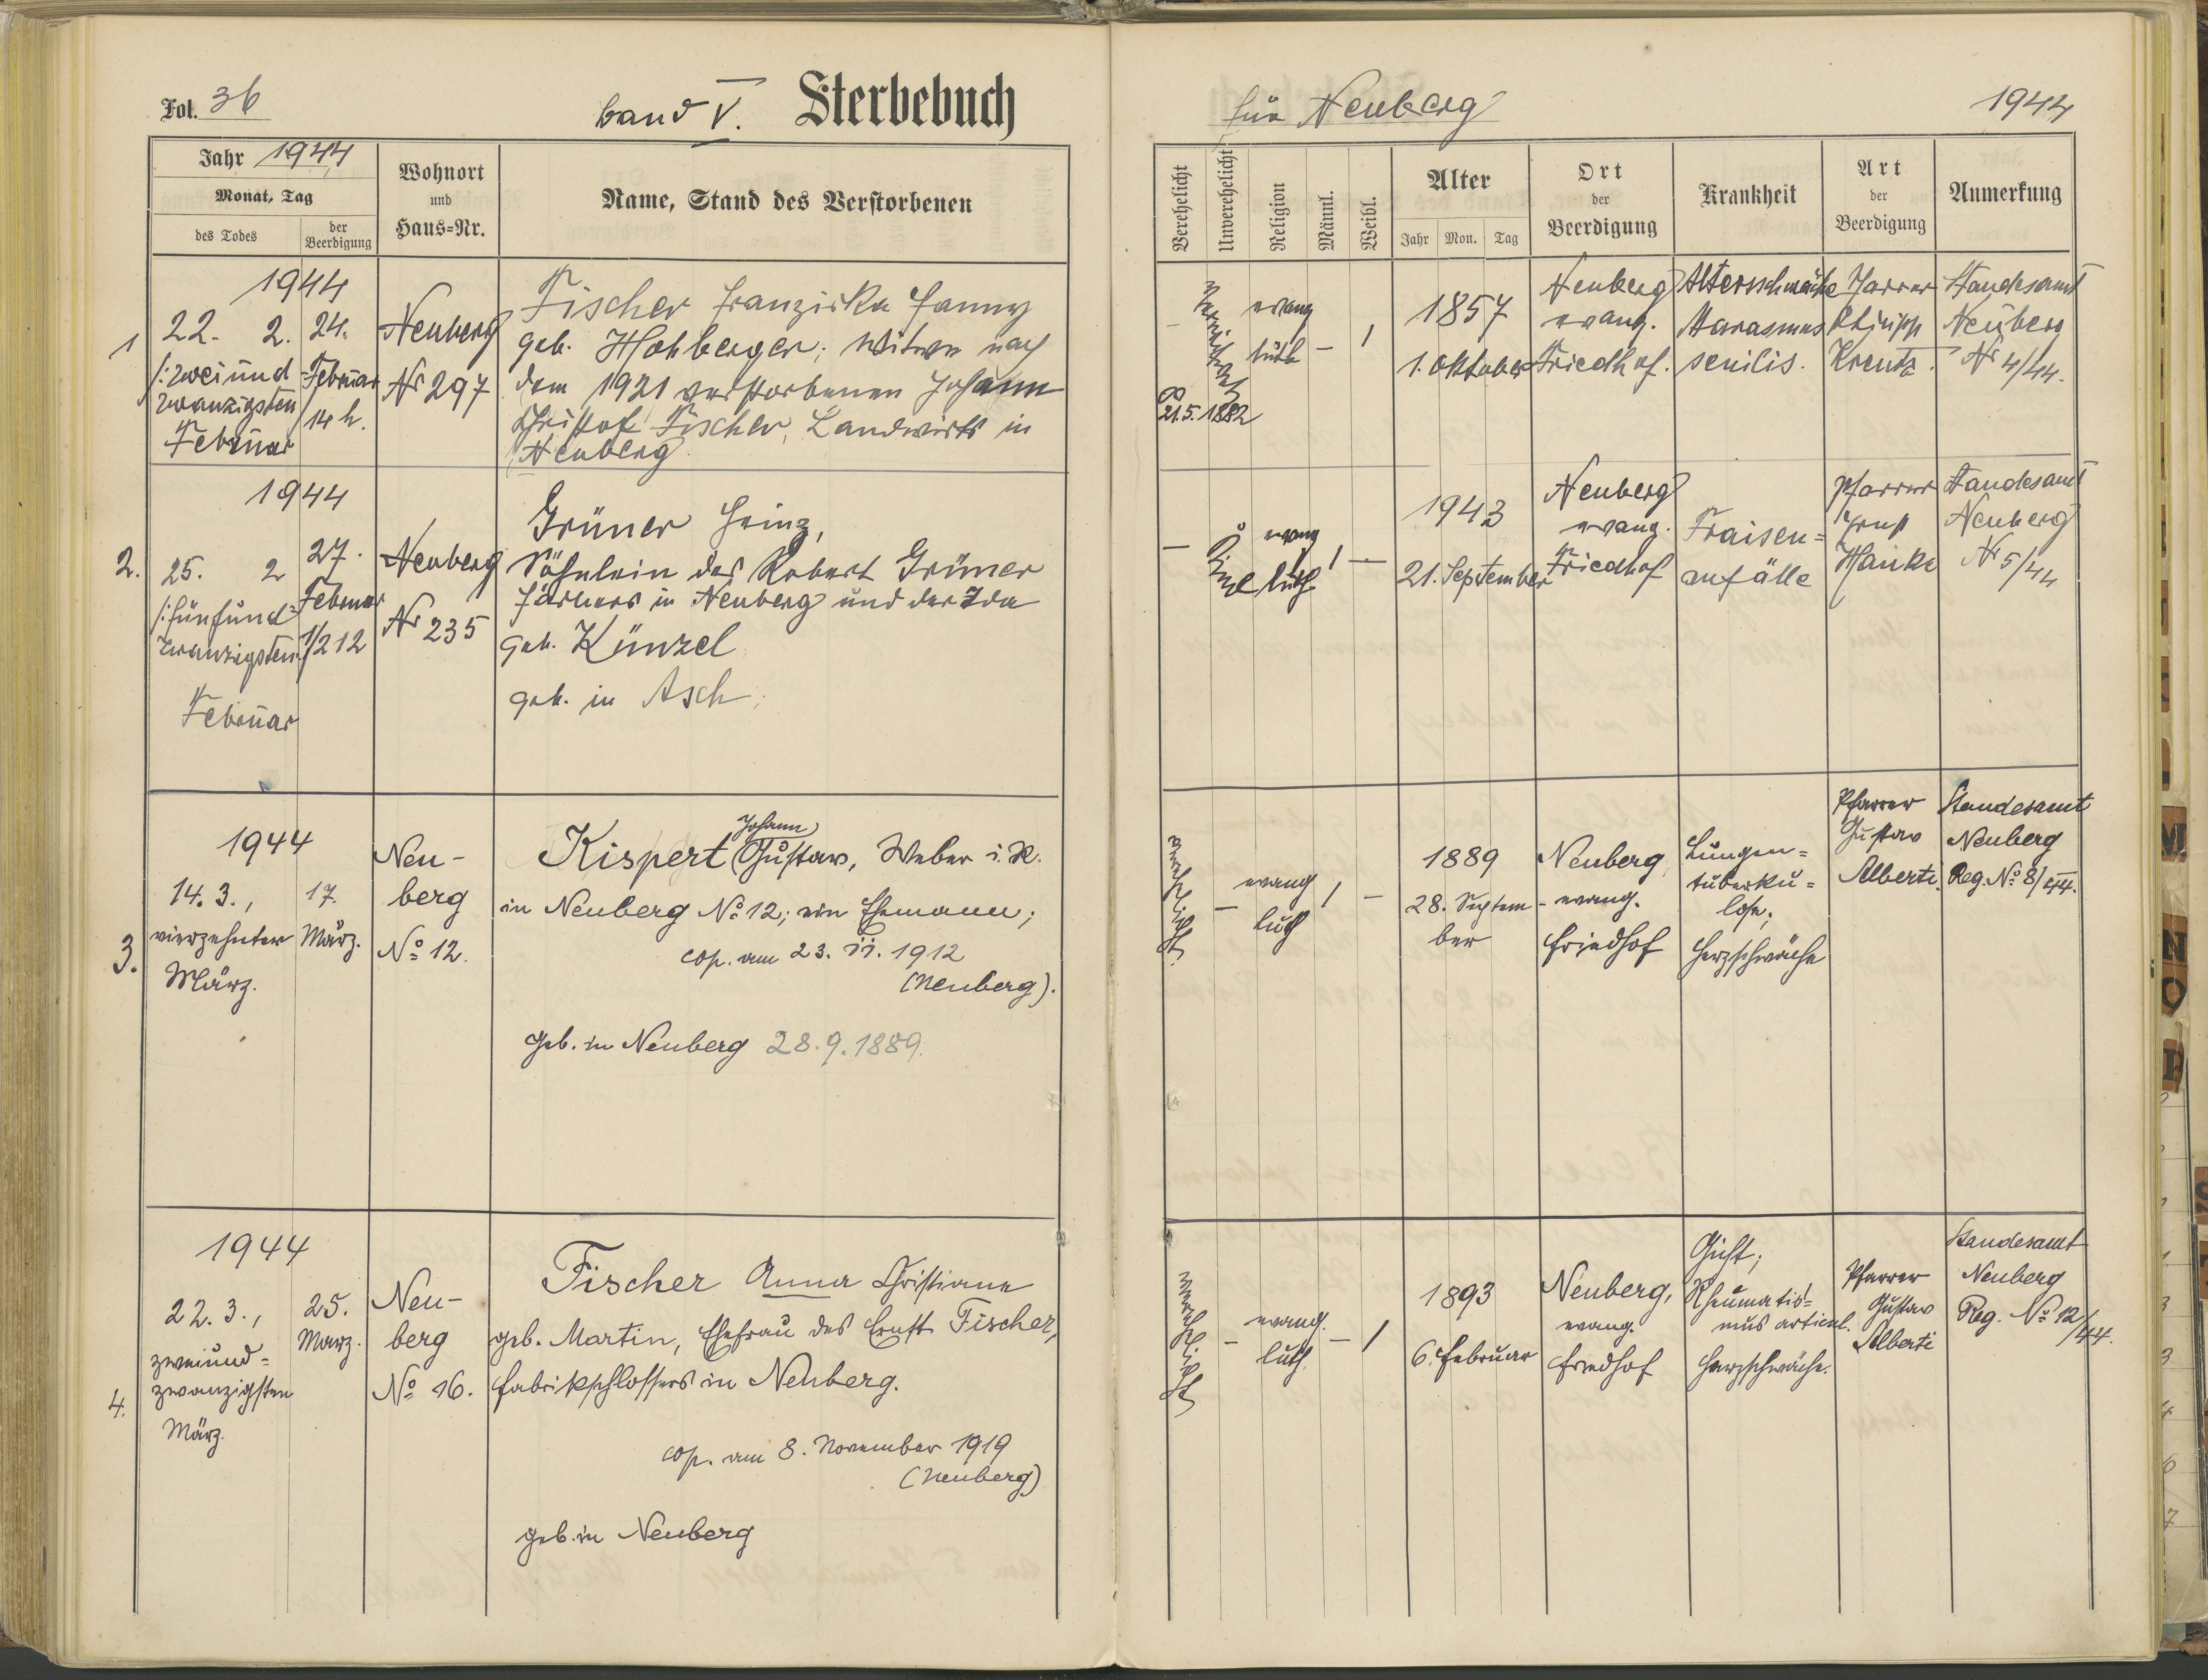 Fol. 36
Band V. Sterbebuch
Jahr 1944
Monat, Tag
des Todes
der
Beerdigung
Wohnort
und
Haus=Nr.
Name, Stand des Verstorbenen
1
1944
22. 2.
/: zwei und
zwanzigsten
Februar
24.
Februar
14 h.
Neuberg
Nr 297
Fischer Franziska Fanny
geb. Hohberger; Witwe nach
dem 1921 verstorbenen Johann
Christof Fischer, Landwirts in
Neuberg
2.
1944
25. 2
/: fünfund=
zwanzigsten
Februar
27.
Februar
1/2 12
Neuberg
Nr 235
Grüner Heinz,
Söhnlein des Robert Grüner
Färbers in Neuberg und der Ida
geb. Künzel
geb. in Asch.
3.
1944
14. 3.,
vierzehnter
März.
17.
März.
Neu-
berg
No 12.
Johann
Kispert Gustav, Weber i. R.
in Neuberg No 12; ein Ehemann;
cop. am 23. II. 1912
(Neuberg).
geb. in Neuberg 28.9.1889.
4.
1944
22. 3.,
zweiund=
zwanzigsten
März.
25.
März.
Neu-
berg
No 16.
Fischer Anna Christiane
geb. Martin, Ehefrau des Ernst Fischer,
Fabrikschlossers in Neuberg.
cop. am 8. November 1919
(Neuberg)
geb. in Neuberg
für Neuberg
1944
Verehelicht
Unverehelicht
Religion
Männl.
Weibl.
Alter
Jahr Mon. Tag
Ort
der
Beerdigung
Krankheit
Art
der
Beerdigung
Anmerkung
∞
21.5.1882
evang
luth
1857
1. Oktober
Neuberg
evang.
Friedhof.
Altersschwäche
Marasmus
senilis.
Pfarrer
Philipp
Krentz.
Standesamt
Neuberg
Nr 4/44.
evang
luth
1943
21. September
Neuberg
evang.
Friedhof
Fraisen=
anfälle
Pfarrer
Ernst
Hanke
Standesamt
Neuberg
Nr 5/44
verehelicht
evang
luth
1889
28. Septem-
ber
Neuberg
evang.
Friedhof
Lungen=
tuberku=
lose;
Herzschwäche
Pfarrer
Gustav
Alberti.
Standesamt
Neuberg
Reg. No 8/44.
verehelicht
evang.
luth.
1893
6. Februar
Neuberg,
evang.
Friedhof
Gicht;
Rheumatis=
mus articul.
Herzschwäche.
Pfarrer
Gustav
Alberti
Standesamt
Neuberg
Reg. No 12/44.